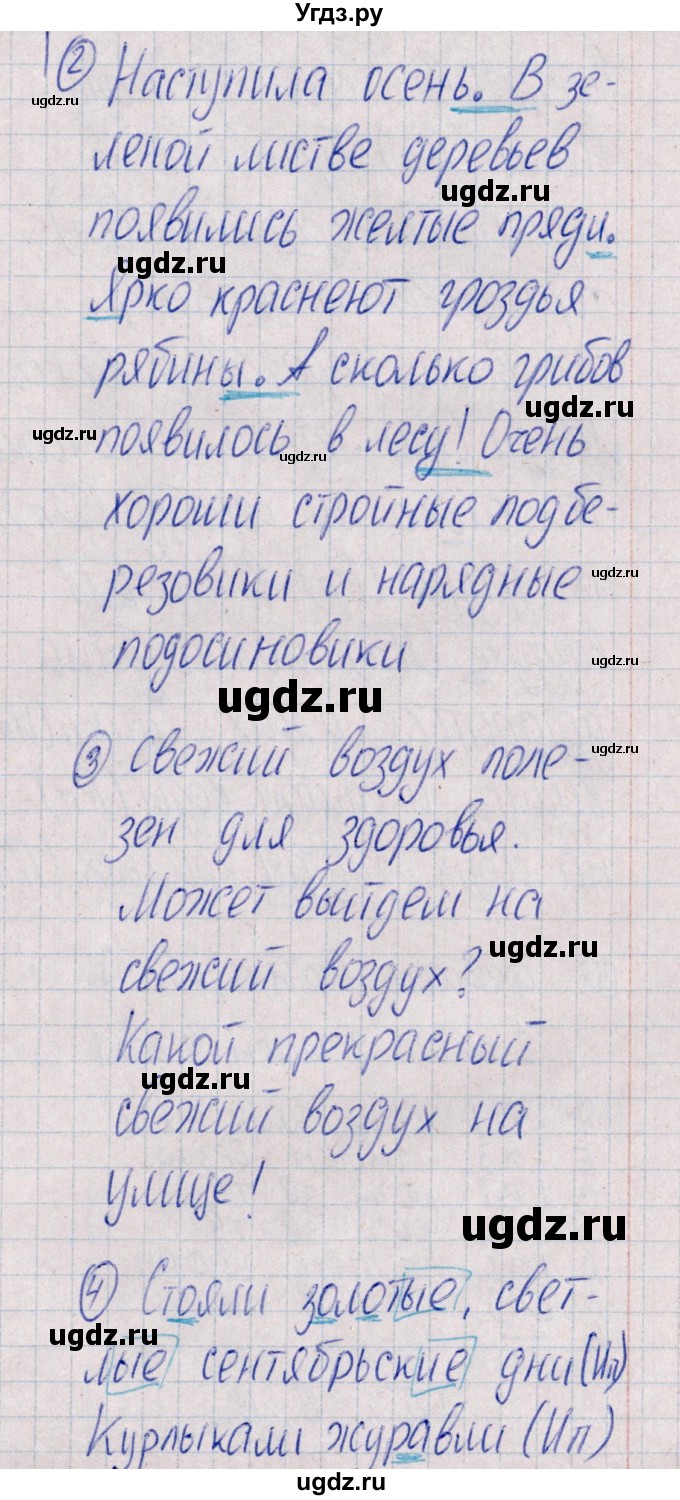 Угдз.ру
② Наступила осень. В зе-
ugdz.ru
леной листве деревьев
ugdz.ru
появились желтые пряди.
ugdz.ru
Ярко краснеют гроздья
рябины. А сколько грибов
ugdz.ru
ugdz.ru появилось в лесу! Очень
ugdz.ru
хороши стройные подбе-
резовики и нарядные
ugdz.ru
подосиновики
ugdz.ru
ugdz.ru
③ Свежий воздух поле-
ugdz.ru
зен для здоровья.
Может выйдем на
ugdz.ru
свежий воздух?
Какой прекрасный
ugdz.ru
свежий воздух на
улице!
ugdz.ru
④ Стояли золотые, свет-
ugdz.ru
лые сентябрьские дни (Ип)
Курлыкали журавли (Ип)
ugdz.ru